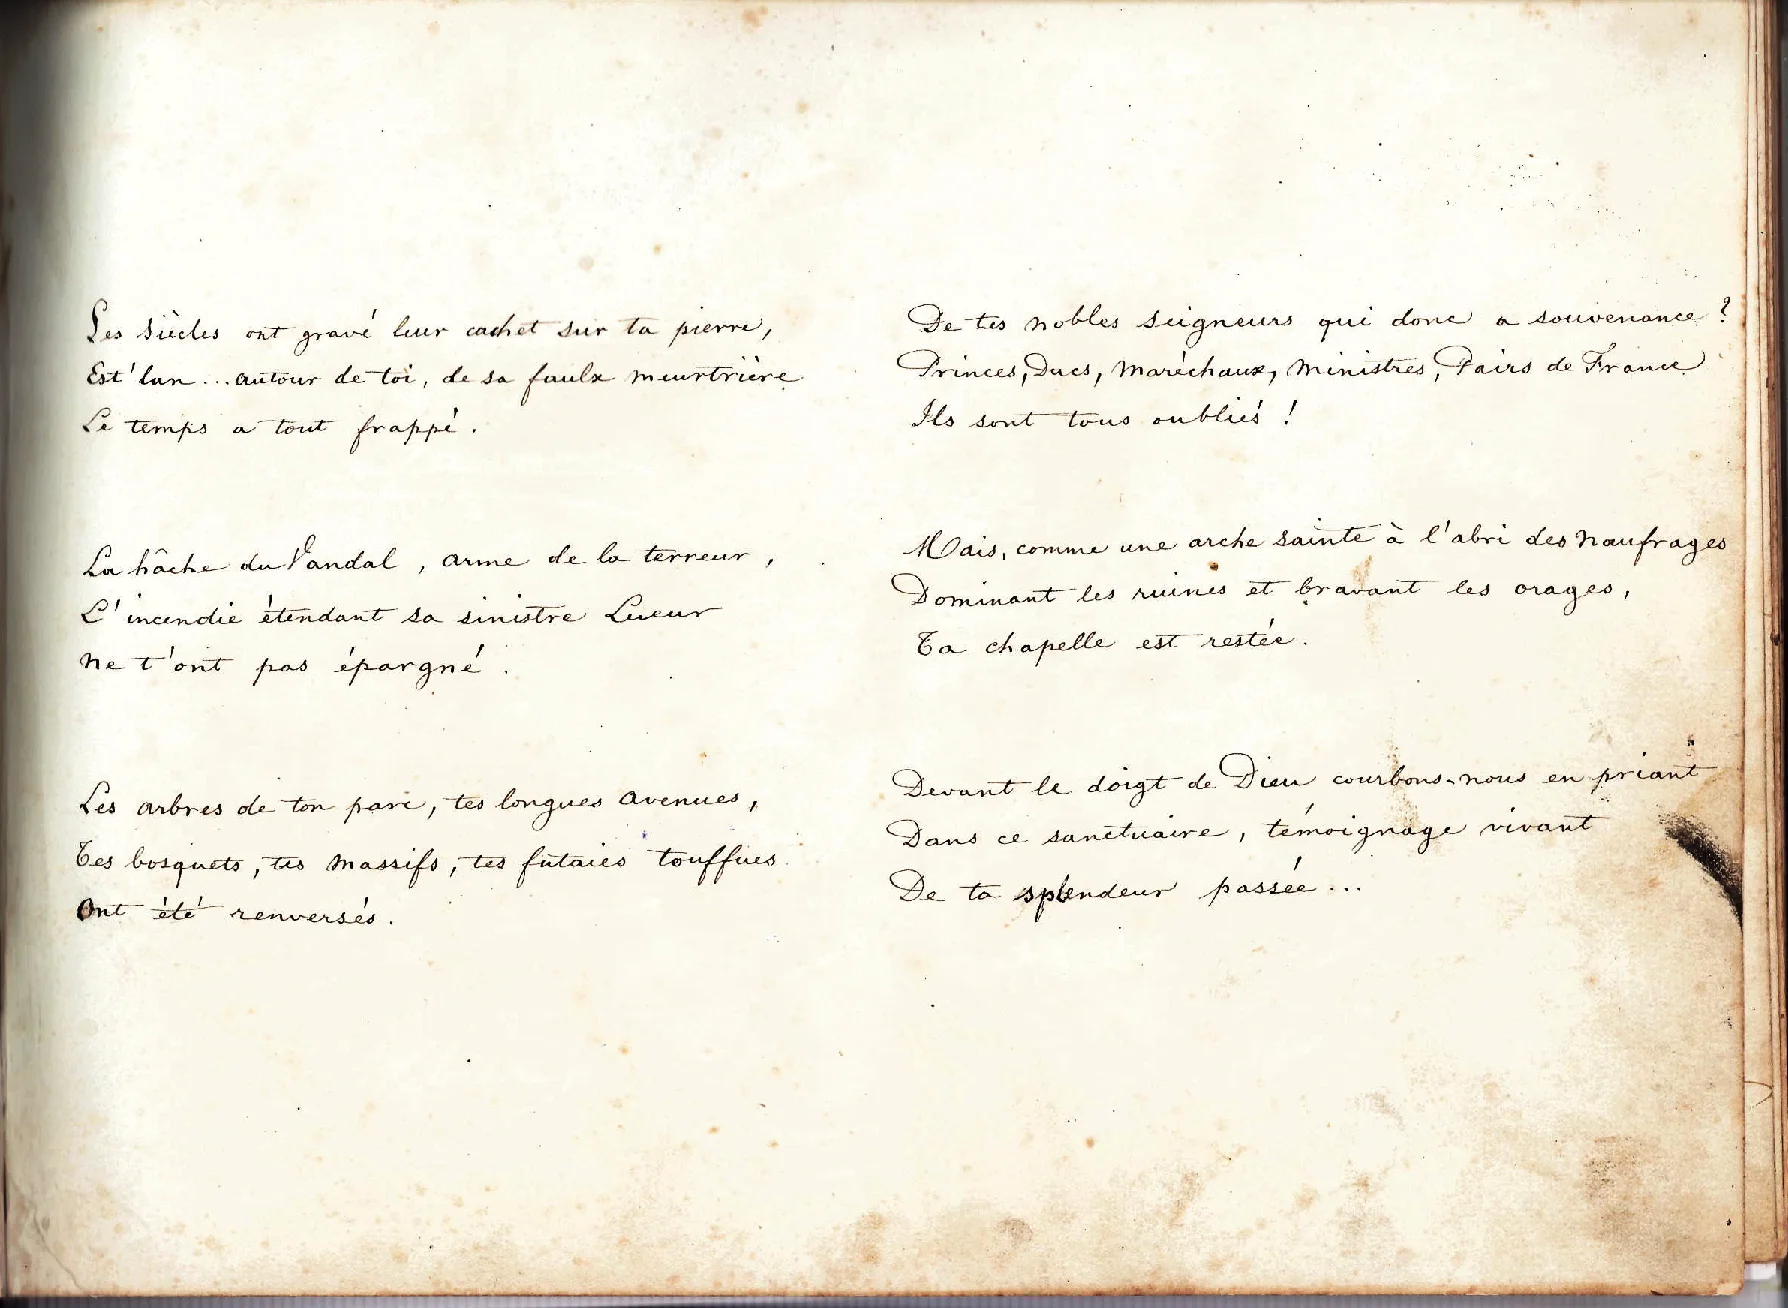 Les siècles ont gravé leur cachet sur ta pierre,
Est'lan... autour de toi, de sa faulx meurtrière
Le temps a tout frappé.
La hâche du Vandal, arme de la terreur,
L'incendie étendant sa sinistre Lueur
Ne t'ont pas épargné.
Les arbres de ton parc, tes longues avenues,
Tes bosquets, tes massifs, tes futaies touffues
Ont été renversés.
De tes nobles seigneurs qui donc a souvenance?
Princes, Ducs, Maréchaux, Ministres, Pairs de France
Ils sont tous oubliés!
Mais, comme une arche sainte à l'abri des naufrages
Dominant les ruines et bravant les orages,
Ta chapelle est restée.
Devant le doigt de Dieu courbons-nous en priant
Dans ce sanctuaire, témoignage vivant
De ta splendeur passée...